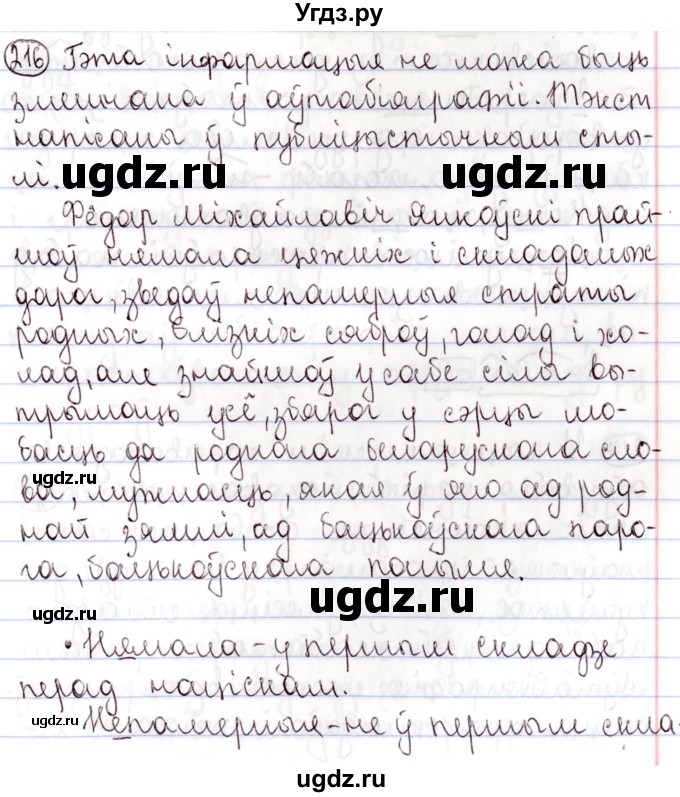 Угдз.ру
216 Гэта інфармацыя не можа быць
змешчана ў аўтабіяграфіі. Тэкст
напісаны ў публіцыстычным сты-
лі.
ugdz.ru ugdz.ru
Фёдар Міхайлавіч Янкоўскі прай-
шоў нямала цяжкіх і складаных
дарог, зведаў непамерныя страты
родных, блізкіх сяброў, голад і хо-
лад, але знайшоў у сабе сілы вы-
трымаць усё, збярог у сэрцы лю-
басць да роднага беларускага сло-
ugdz.ru
ва, мужнасць, якая ў яго ад род-
най зямлі, ад бацькоўскага паро-
га, бацькоўскага полымя.
ugdz.ru
ugdz.ru
• Нямала - у першым складзе
перад націскам.
ugdz.ru
Непамерныя - не ў першым скла-
ugdz.ru